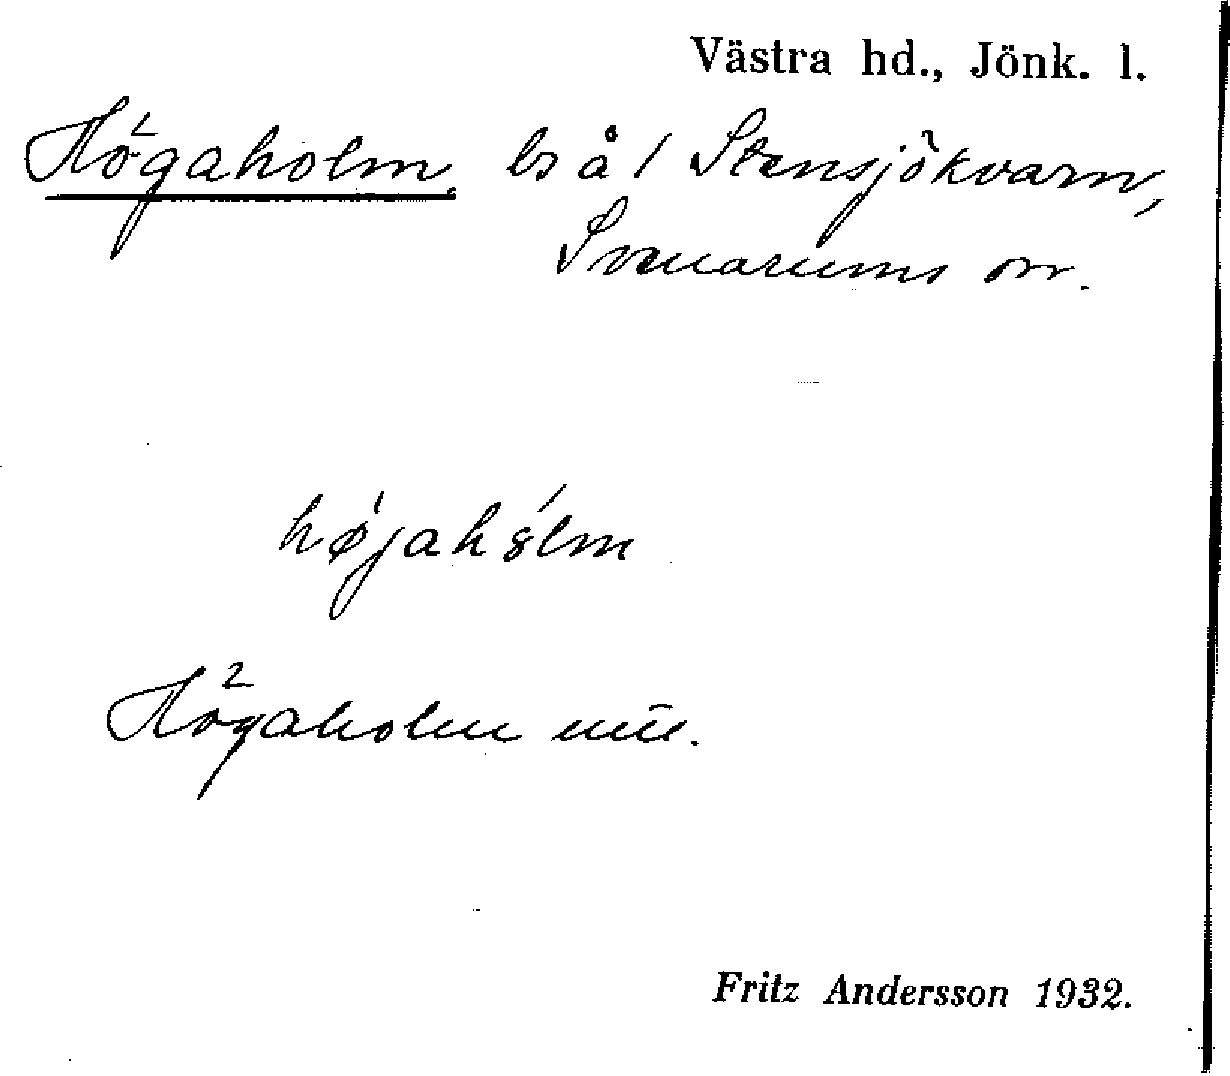 Västra hd., Jönk. l.
Högaholm. ls å 1 Stensjökvarn,
Svenarums sn.
højahólm
Högaholm
Fritz Andersson 1932.